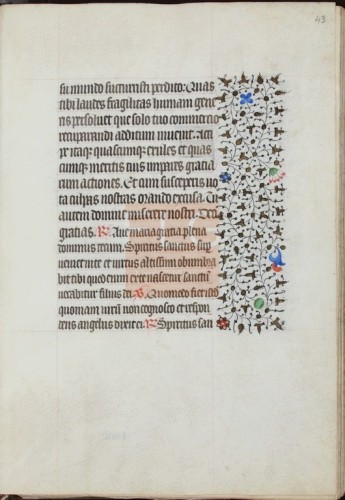 43
su mundo succuristi perdito: Quas
tibi laudes fragilitas humani gene
ris persoluet que solo tuo commercio
recuperandi aditum inuenit. Acci
pe itaque quascumque exiles et quas
cumque meritis tuis impares gratia
rum actiones. Et cum susceperis uo
ta culpas nostras orando excusa. Tu
autem domine miserere nostri. Deo
gratias. R. Aue maria gratia plena
dominus tecum. Spiritus sanctus sup
ueniet in te et uirtus altissimi obumbra
bit tibi quod enim ex te nascetur sanctu
uocabitur filius dei. V. Quomodo fiet istud
quoniam uirum non cognosco et respon
dens angelus dixit ei. R. Spiritus san